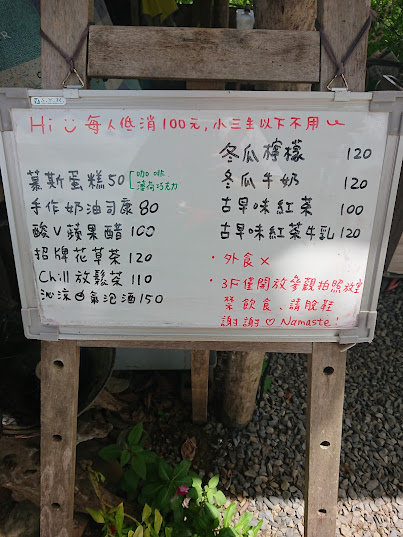 Hi 每人低消100元,小三生以下不用
慕斯蛋糕50 [咖啡 薄荷巧克力
手作奶油司康 80
酸V蘋果醋 100
招牌花草茶 120
Chill 放鬆茶 110
沁涼 氣泡酒 150
冬瓜檸檬 120
冬瓜牛奶 120
古早味紅茶 100
古早味紅茶牛乳 120
・外食 ×
・3F僅開放參觀拍照放空
禁飲食、請脫鞋
謝謝♡ Namaste!